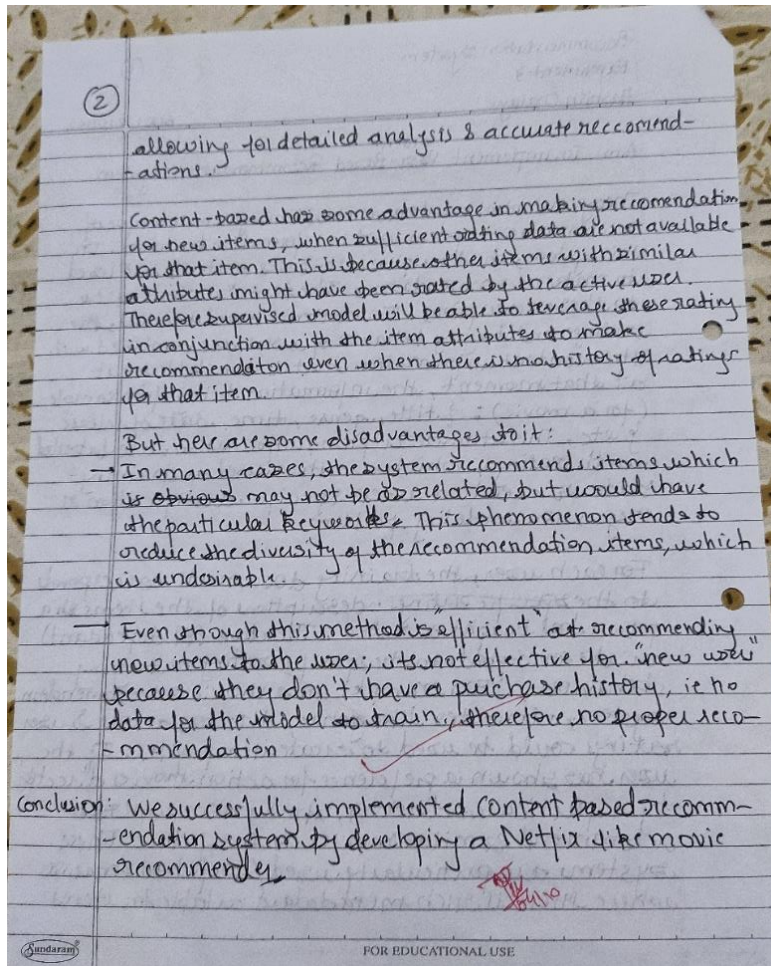 ②
allowing for detailed analysis & accurate reccomend-
-ations.
Content-based has some advantage in making recomendation
for new items, when sufficient rating data are not available
for that item. This is because other items with similar
attributes might have been rated by the active user.
Therefore supervised model will be able to leverage these rating
in conjunction with the item attributes to make
recommendaiton even when there is no history of ratings
for that item.
But here are some disadvantages to it:
→ In many cases, the system reccomends items which
is obvious may not be as related, but would have
the particular keywords. This phenomenon tends to
reduce the diversity of the recommendation items, which
is undesirable.
→ Even though this method is "efficient" at recommending
new items to the user; its not effective for "new user"
because they don't have a purchase history, ie no
data for the model to train, therefore no proper reco-
-mmendation
Conclusion: We successfully implemented content based recomm-
-endation system by developing a Netflix like movie
recommender.
Sundaram FOR EDUCATIONAL USE